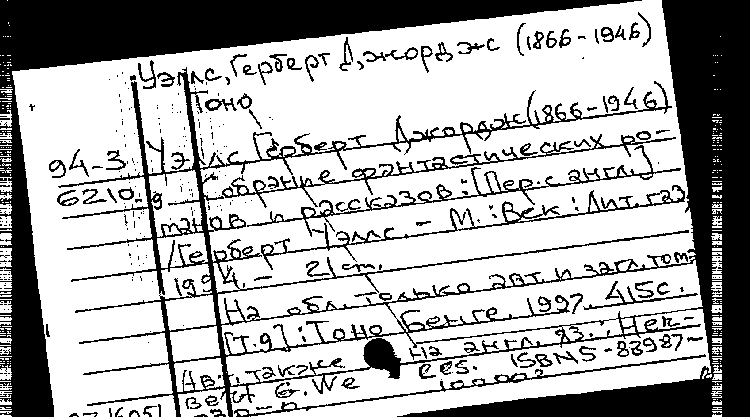 Уэллс, Герберт Джордж (1866-1946)
Тоно
94-3 Уэллс, Герберт Джордж (1866-1946)
6210-9 Собрание фантастических ро-
манов и рассказов : [Пер. с англ.]
/Герберт Уэллс. - М. : Век : Лит. газ,
1994. - 21 см.
На обл. только авт. и загл. тома
[Т.9] : Тоно Бенге. 1997. 415с.
Авт. также на англ. яз. : Нек-
G. We ISBN5-83987-
10000э